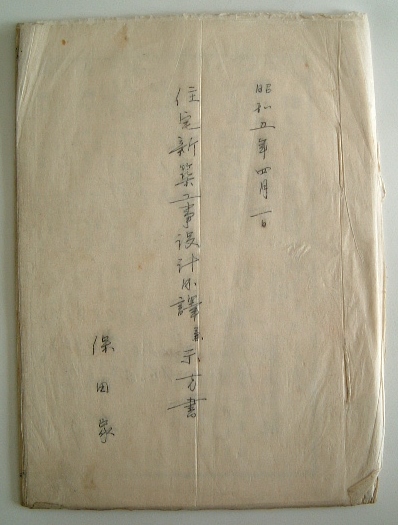 昭和五年四月一日
住宅新築工事設計内譯及示方書
保田家